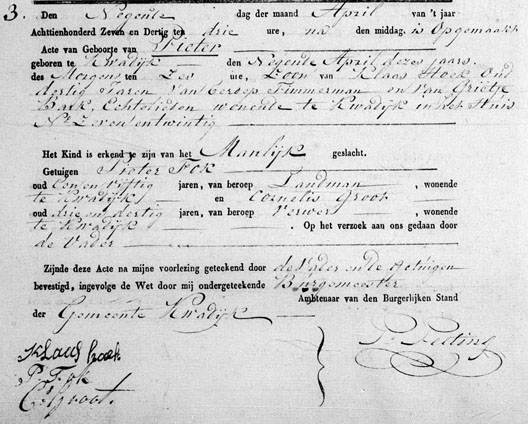 3. Den Negende dag der maand April van 't jaar
Achttienhonderd Zeven en Dertig ten drie ure, na den middag, is Opgemaakt
Acte van Geboorte van Pieter
geboren te Kwadijk den Negende April dezes jaars.
des Morgens ten Zes ure, Zoon van Klaas Hoek Oud
dertig Jaren van beroep Timmerman en van Grietje
Bark, Echtelieden wonende te Kwadijk in het Huis
No Zeven en twintig
Het Kind is erkend te zijn van het Manlijk geslacht.
Getuigen Pieter Fok
oud Een en vijftig jaren, van beroep Landman, wonende
te Kwadijk en Cornelis Groot
oud drie en dertig jaren, van beroep Verwer, wonende
te Kwadijk Op het verzoek aan ons gedaan door
de Vader
Zijnde deze Acte na mijne voorlezing geteekend door de Vader en de Getuigen
bevestigd, ingevolge de Wet door mij ondergeteekende Burgemeester
Ambtenaar van den Burgerlijken Stand
der Gemeente Kwadijk
Klaas hoek
P. Fok
C. Groot.